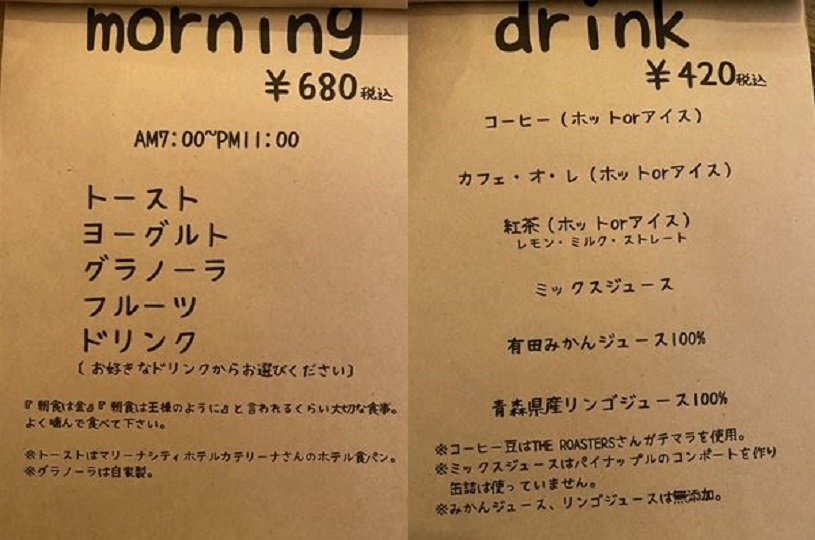 morning
￥680税込
AM7:00~PM11:00
トースト
ヨーグルト
グラノーラ
フルーツ
ドリンク
〔お好きなドリンクからお選びください〕
『朝食は金』『朝食は王様のように』と言われるくらい大切な食事。
よく噛んで食べて下さい。
※トーストはマリーナシティホテルカテリーナさんのホテル食パン。
※グラノーラは自家製。
drink
￥420税込
コーヒー(ホットorアイス)
カフェ・オ・レ(ホットorアイス)
紅茶(ホットorアイス)
レモン・ミルク・ストレート
ミックスジュース
有田みかんジュース100%
青森県産リンゴジュース100%
※コーヒー豆はTHE ROASTERSさんガテマラを使用。
※ミックスジュースはパイナップルのコンポートを作り
缶詰は使っていません。
※みかんジュース、リンゴジュースは無添加。